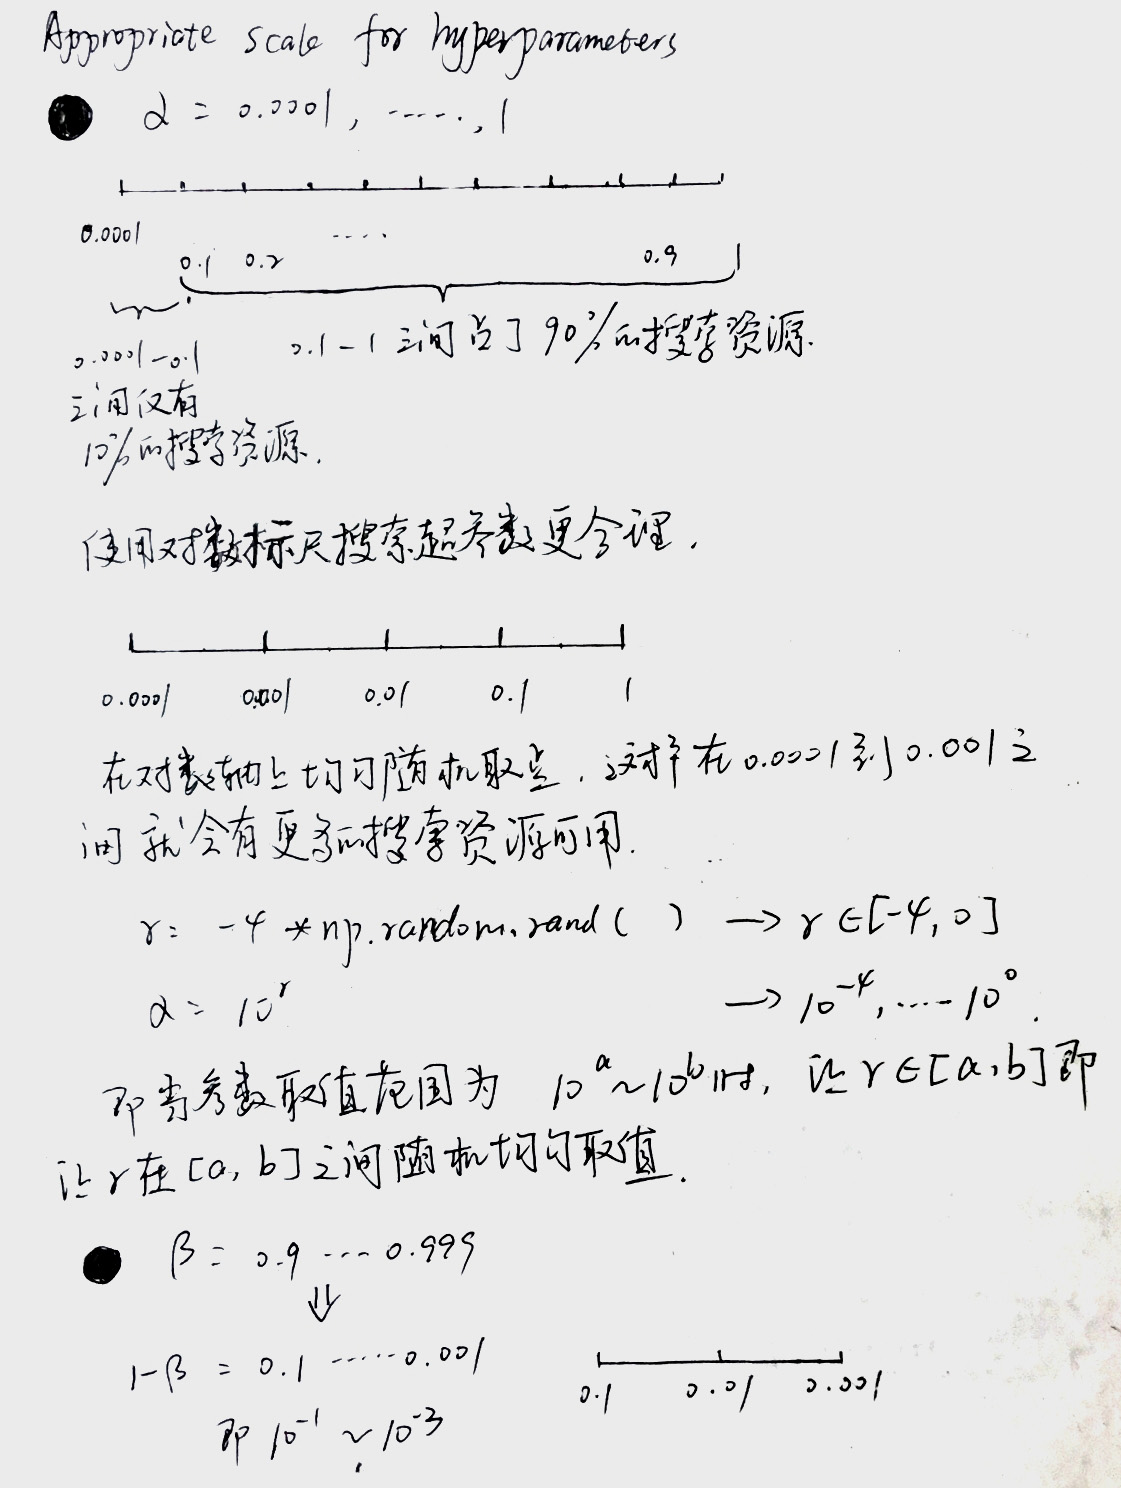 Appropriate scale for hyperparameters
α = 0.0001, ······, 1
0.0001 ····
0.1 0.2 0.9 1
0.0001-0.1 0.1-1之间占了90%的搜索资源.
之间仅有
10%的搜索资源.
使用对数标尺搜索超参数更合理.
0.0001 0.001 0.01 0.1 1
在对数轴上均匀随机取点,这样在0.0001到0.001之
间就会有更多的搜索资源可用.
r = -4 * np.random.rand( ) → r∈[-4, 0]
α = 10^r → 10^-4, ····· 10^0.
即当参数取值范围为 10^a ~ 10^b 时, 让 r∈[a,b] 即
让 r 在 [a, b] 之间随机均匀取值.
β = 0.9 ···· 0.999
⇓
1-β = 0.1 ······ 0.001
0.1 0.01 0.001
即 10^-1 ~ 10^-3